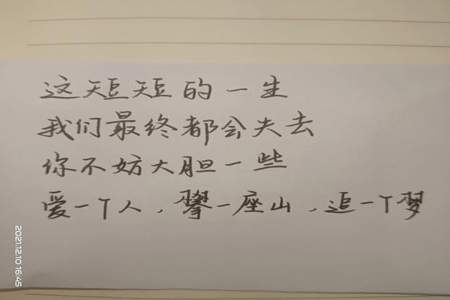 这短短的一生
我们最终都会失去
你不妨大胆一些
爱一个人，攀一座山，追一个梦
2021.12.10 16:45